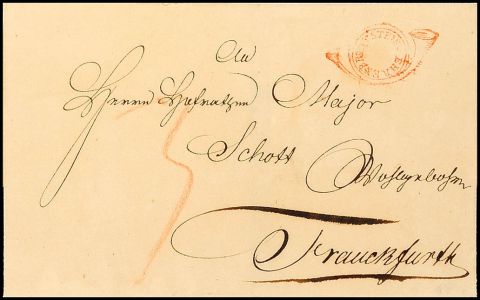 An
Herrn Hofrathen Major
Schott
Wohlgebohrn
Franckfurth
3